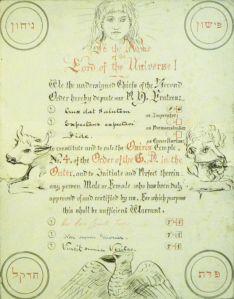 גיחון
פישון
In the Name
of the
Lord of the Universe!
We the undersigned Chiefs of the Second
Order hereby depute our Fratres:
Crux dat Salutem
as Imperator
Expectans expectavi
as Praemonstrator
Fide
as Cancellarius
to constitute and to rule the Osiris Temple
No. 4, of the Order of the G. D. in the
Outer, and to Initiate and Perfect therein
any person Male or Female who has been duly
approved of and certified by us. For which purpose
this shall be sufficient Warrant.
Non omnis Moriar
Vincit omnia Veritas
חדקל
פרת